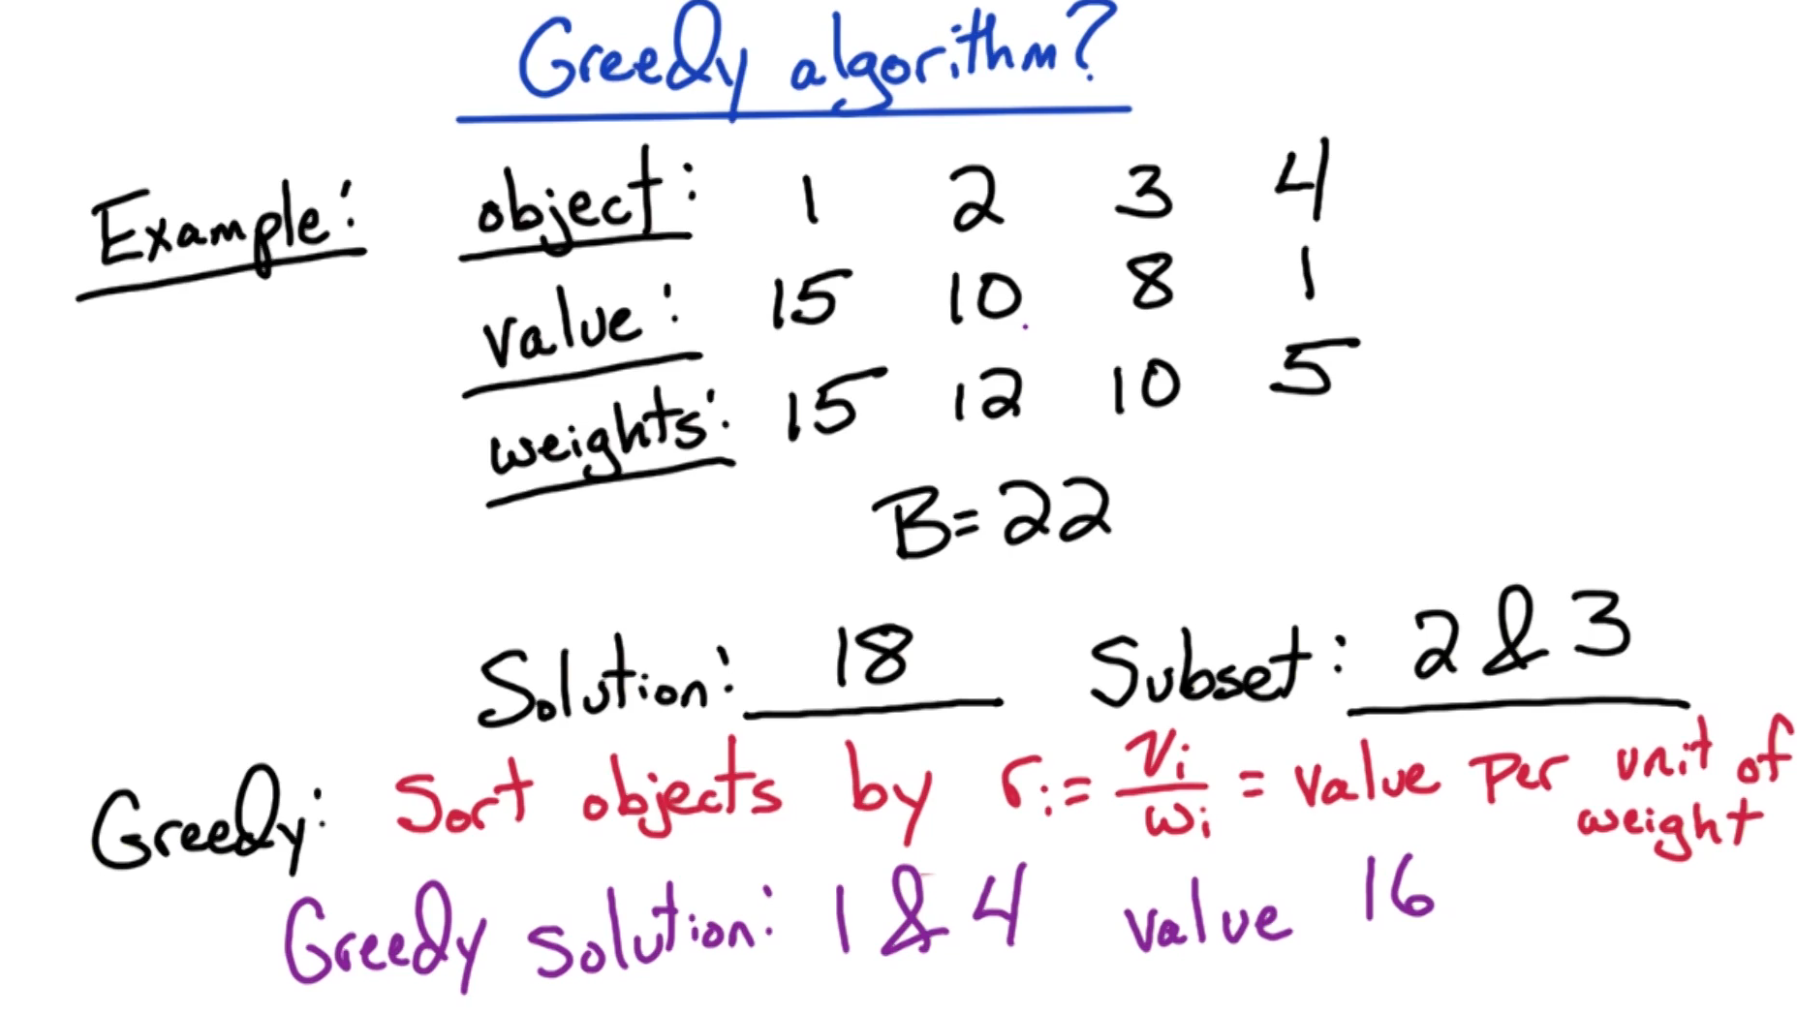 Greedy algorithm?
Example: object: 1 2 3 4
value: 15 10 8 1
weights: 15 12 10 5
B=22
Solution: 18 Subset: 2 & 3
Greedy: Sort objects by rᵢ = vᵢ/wᵢ = value per unit of weight
Greedy solution: 1 & 4 value 16